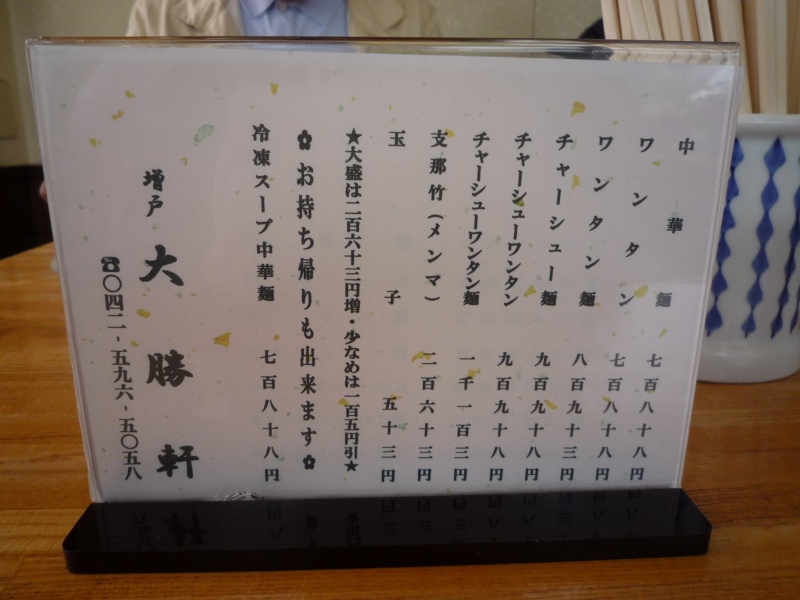 中華麺 七百八十八円
ワンタン 七百八十八円
ワンタン麺 八百九十三円
チャーシュー麺 九百九十八円
チャーシューワンタン 九百九十八円
チャーシューワンタン麺 一千一百三円
支那竹(メンマ) 二百六十三円
玉子 五十三円
★大盛は二百六十三円増・少なめは一百五円引★
✿お持ち帰りも出来ます✿
冷凍スープ中華麺 七百八十八円
増戸 大勝軒
☎〇四二-五九六-五〇五八